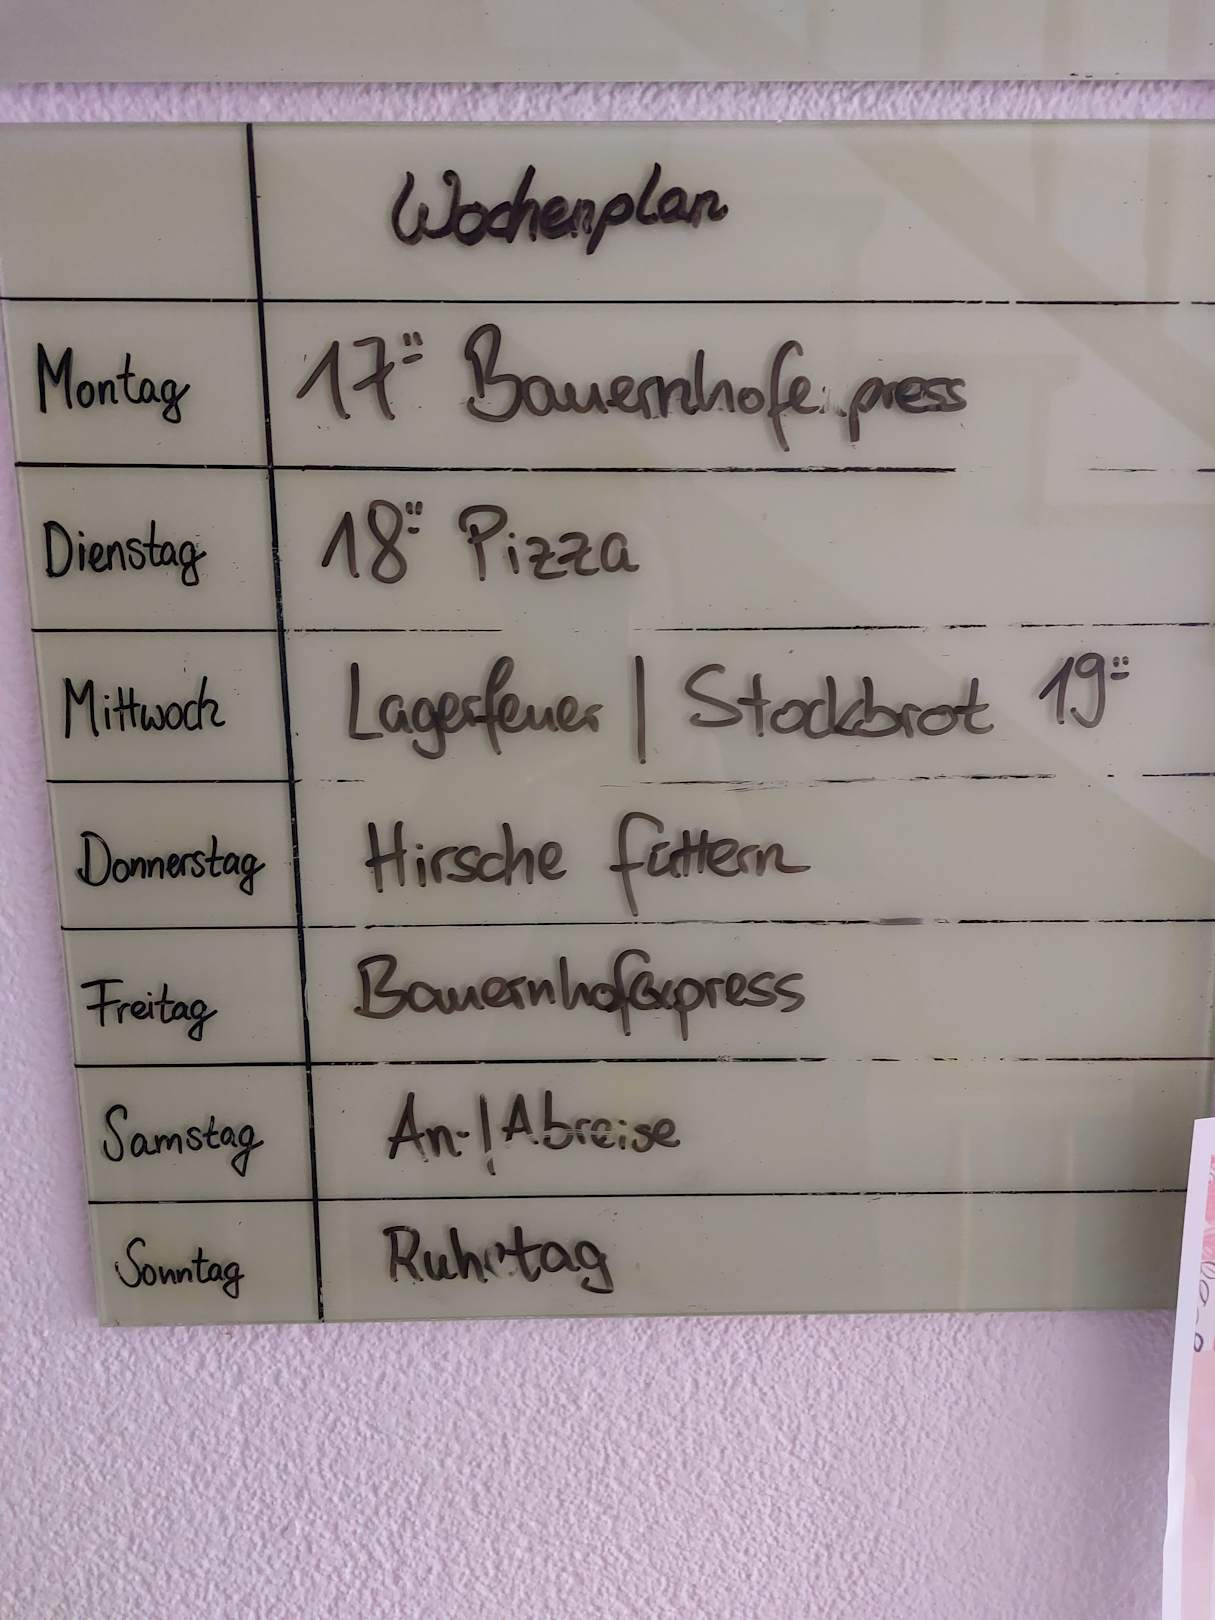 Wochenplan
Montag 17:00 Bauernhofexpress
Dienstag 18:00 Pizza
Mittwoch Lagerfeuer | Stockbrot 19:00
Donnerstag Hirsche füttern
Freitag Bauernhofexpress
Samstag An-/Abreise
Sonntag Ruhetag